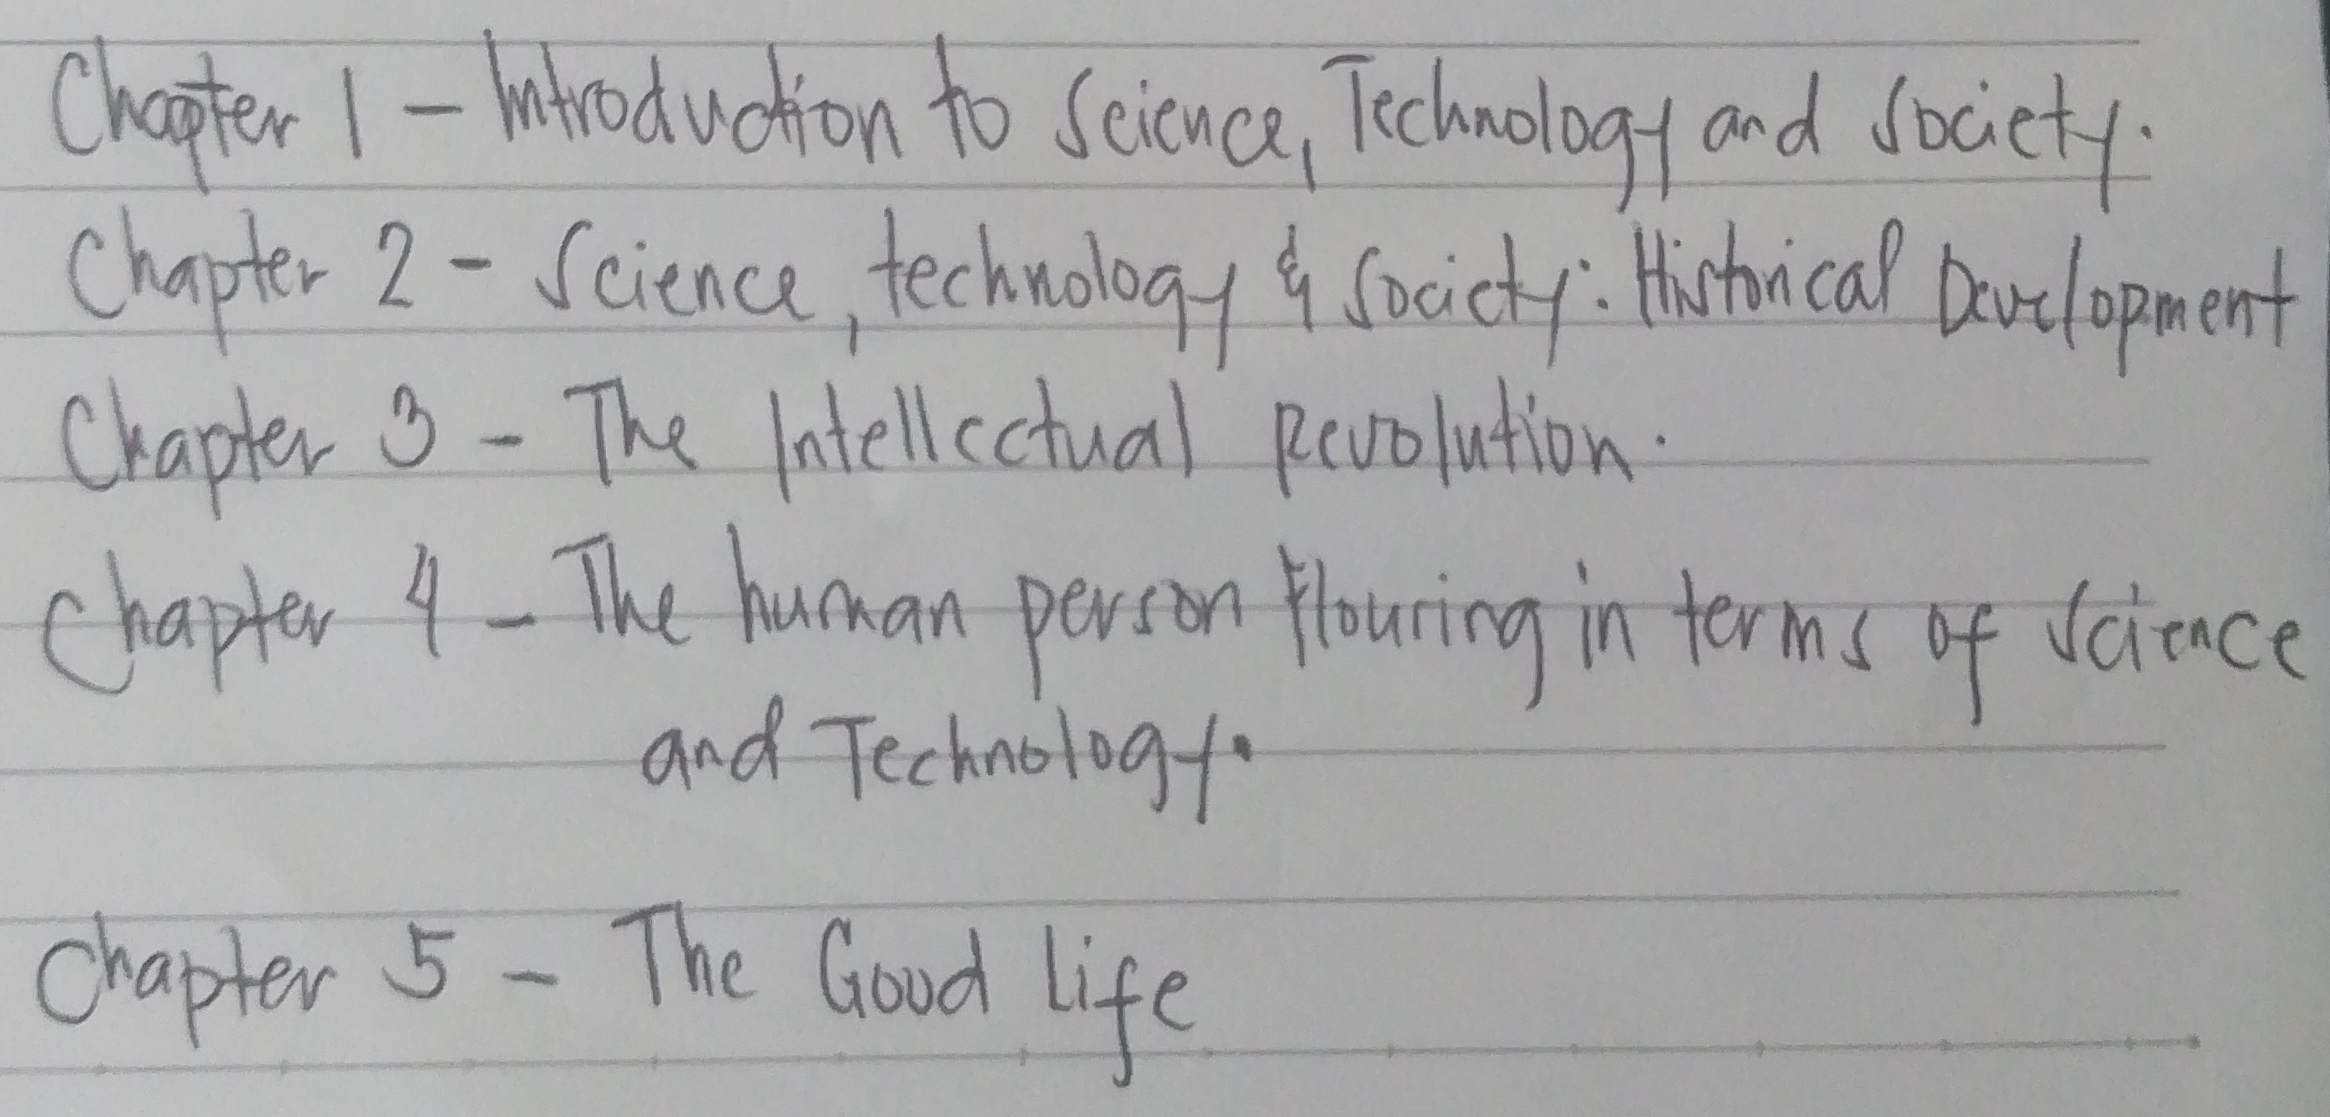 Chapter 1 - Introduction to Science, Technology and Society.
Chapter 2 - Science, technology & Society: Historical Development
Chapter 3 - The Intellectual Revolution.
Chapter 4 - The human person flouring in terms of Science
and Technology.
Chapter 5 - The Good Life